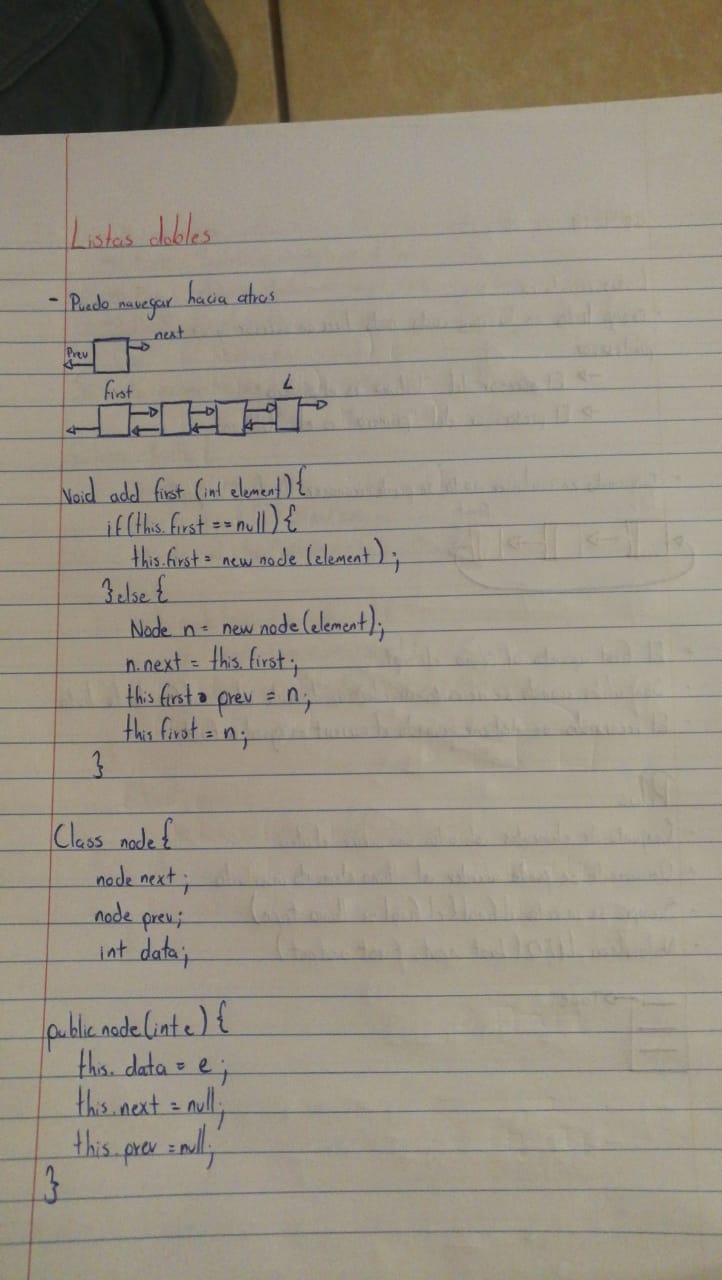 Listas dobles
- Puedo navegar hacia atras
next
Prev
first L
Void add first (int element){
if(this.first == null){
this.first = new node (element);
}else{
Node n = new node(element);
n.next = this.first;
this first. prev = n;
this first = n;
}
Class node{
node next;
node prev;
int data;
public node(int e){
this. data = e;
this.next = null;
this.prev = null;
}